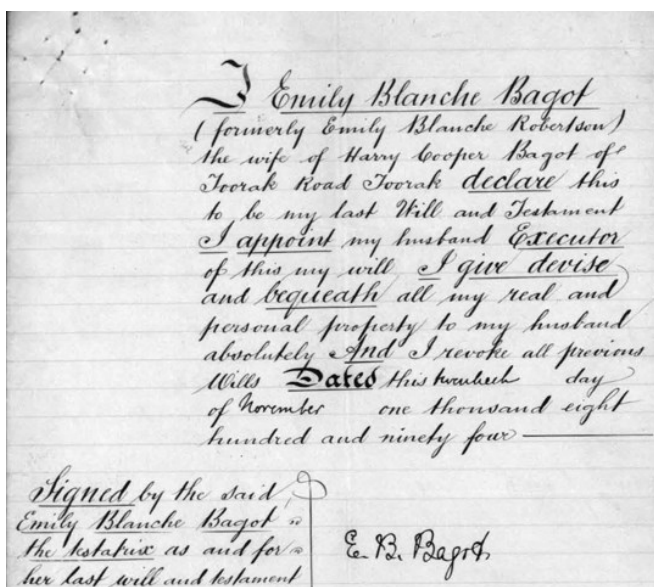 I Emily Blanche Bagot
(formerly Emily Blanche Robertson)
the wife of Harry Cooper Bagot of
Toorak Road Toorak declare this
to be my last Will and Testament
I appoint my husband Executor
of this my will I give devise
and bequeath all my real and
personal property to my husband
absolutely And I revoke all previous
Wills Dated this twentieth day
of November one thousand eight
hundred and ninety four
Signed by the said
Emily Blanche Bagot
the testatrix as and for
her last will and testament
E. B. Bagot